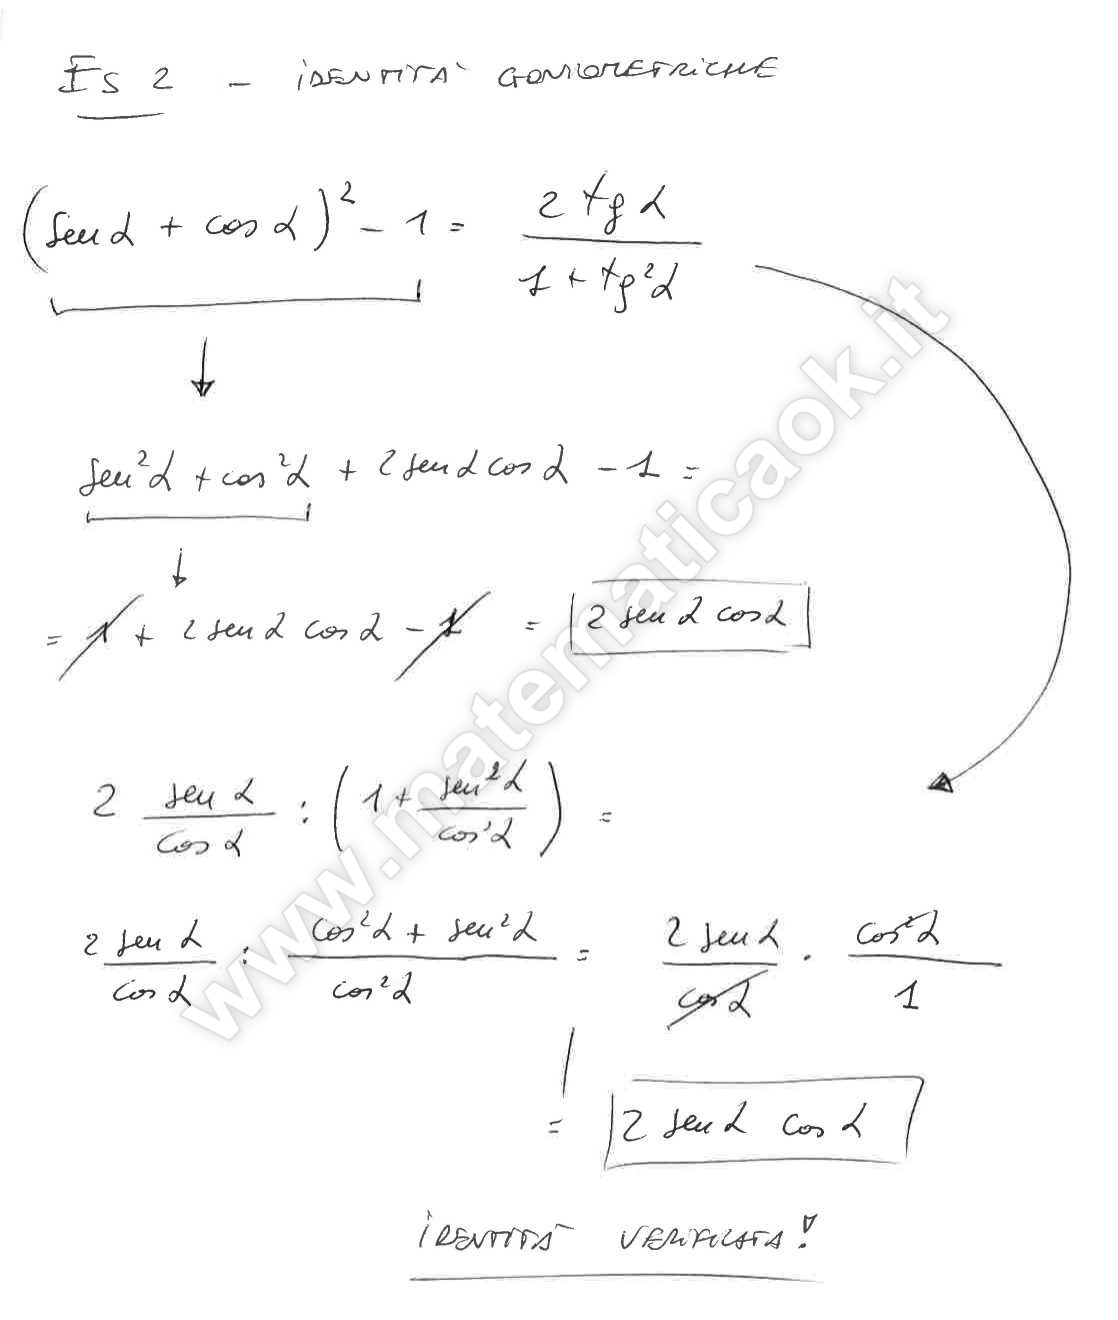 ES 2 - IDENTITA' GONIOMETRICHE
(sen α + cos α)² - 1 = 2 tg α / 1 + tg²α
sen²α + cos²α + 2 sen α cos α - 1 =
= 1 + 2 sen α cos α - 1 = 2 sen α cos α
2 sen α / cos α : (1 + sen²α / cos²α) =
2 sen α / cos α : cos²α + sen²α / cos²α = 2 sen α / cos α · cos²α / 1
= 2 sen α cos α
IDENTITÀ VERIFICATA!
www.matematicaok.it